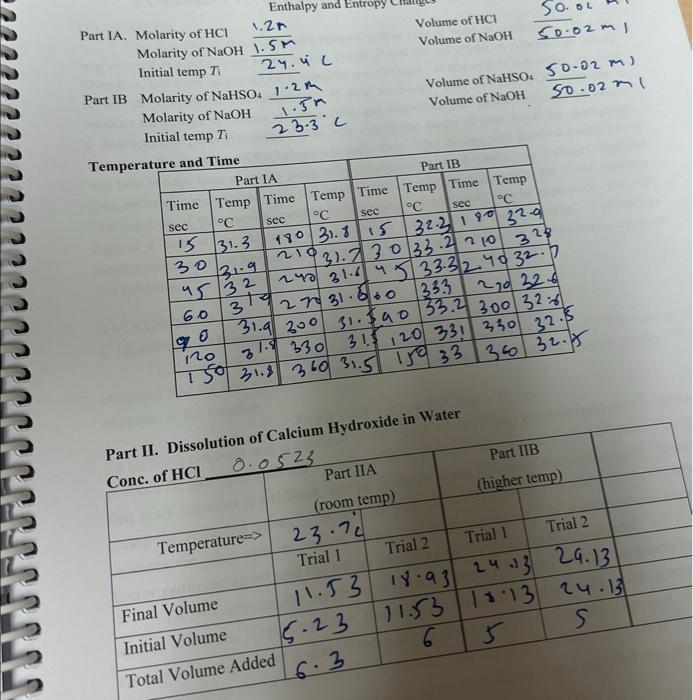 Enthalpy and Entropy
Part IA. Molarity of HCl 1.2m Volume of HCl
Molarity of NaOH 1.5m Volume of NaOH 50.02 ml
Initial temp Ti 24.4 C
Part IB Molarity of NaHSO4 1.2m Volume of NaHSO4 50.02 ml
Molarity of NaOH 1.5m Volume of NaOH 50.02 ml
Initial temp Ti 23.3°C
Temperature and Time
Part IA Part IB
Time Temp Time Temp Time Temp Time Temp
sec °C sec °C sec °C sec °C
15 31.3 180 31.8 15 32.2 180 32.9
30 31.9 210 31.7 30 33.2 210 328
45 32 240 31.6 45 33.3 240 32.7
60 270 31.6 60 333 270 32.6
90 31.9 300 90 33.2 300
120 31.8 330 31.5 120 331 330 32.5
150 31.8 360 31.5 150 33 360
Part II. Dissolution of Calcium Hydroxide in Water
Conc. of HCl 0.0523
Part IIA Part IIB
(room temp) (higher temp)
Temperature=> 23.7c
Trial 1 Trial 2 Trial 1 Trial 2
Final Volume 11.53 18.93 24.13 29.13
Initial Volume 5.23 11.53 18.13 24.13
Total Volume Added 6.3 6 5 5